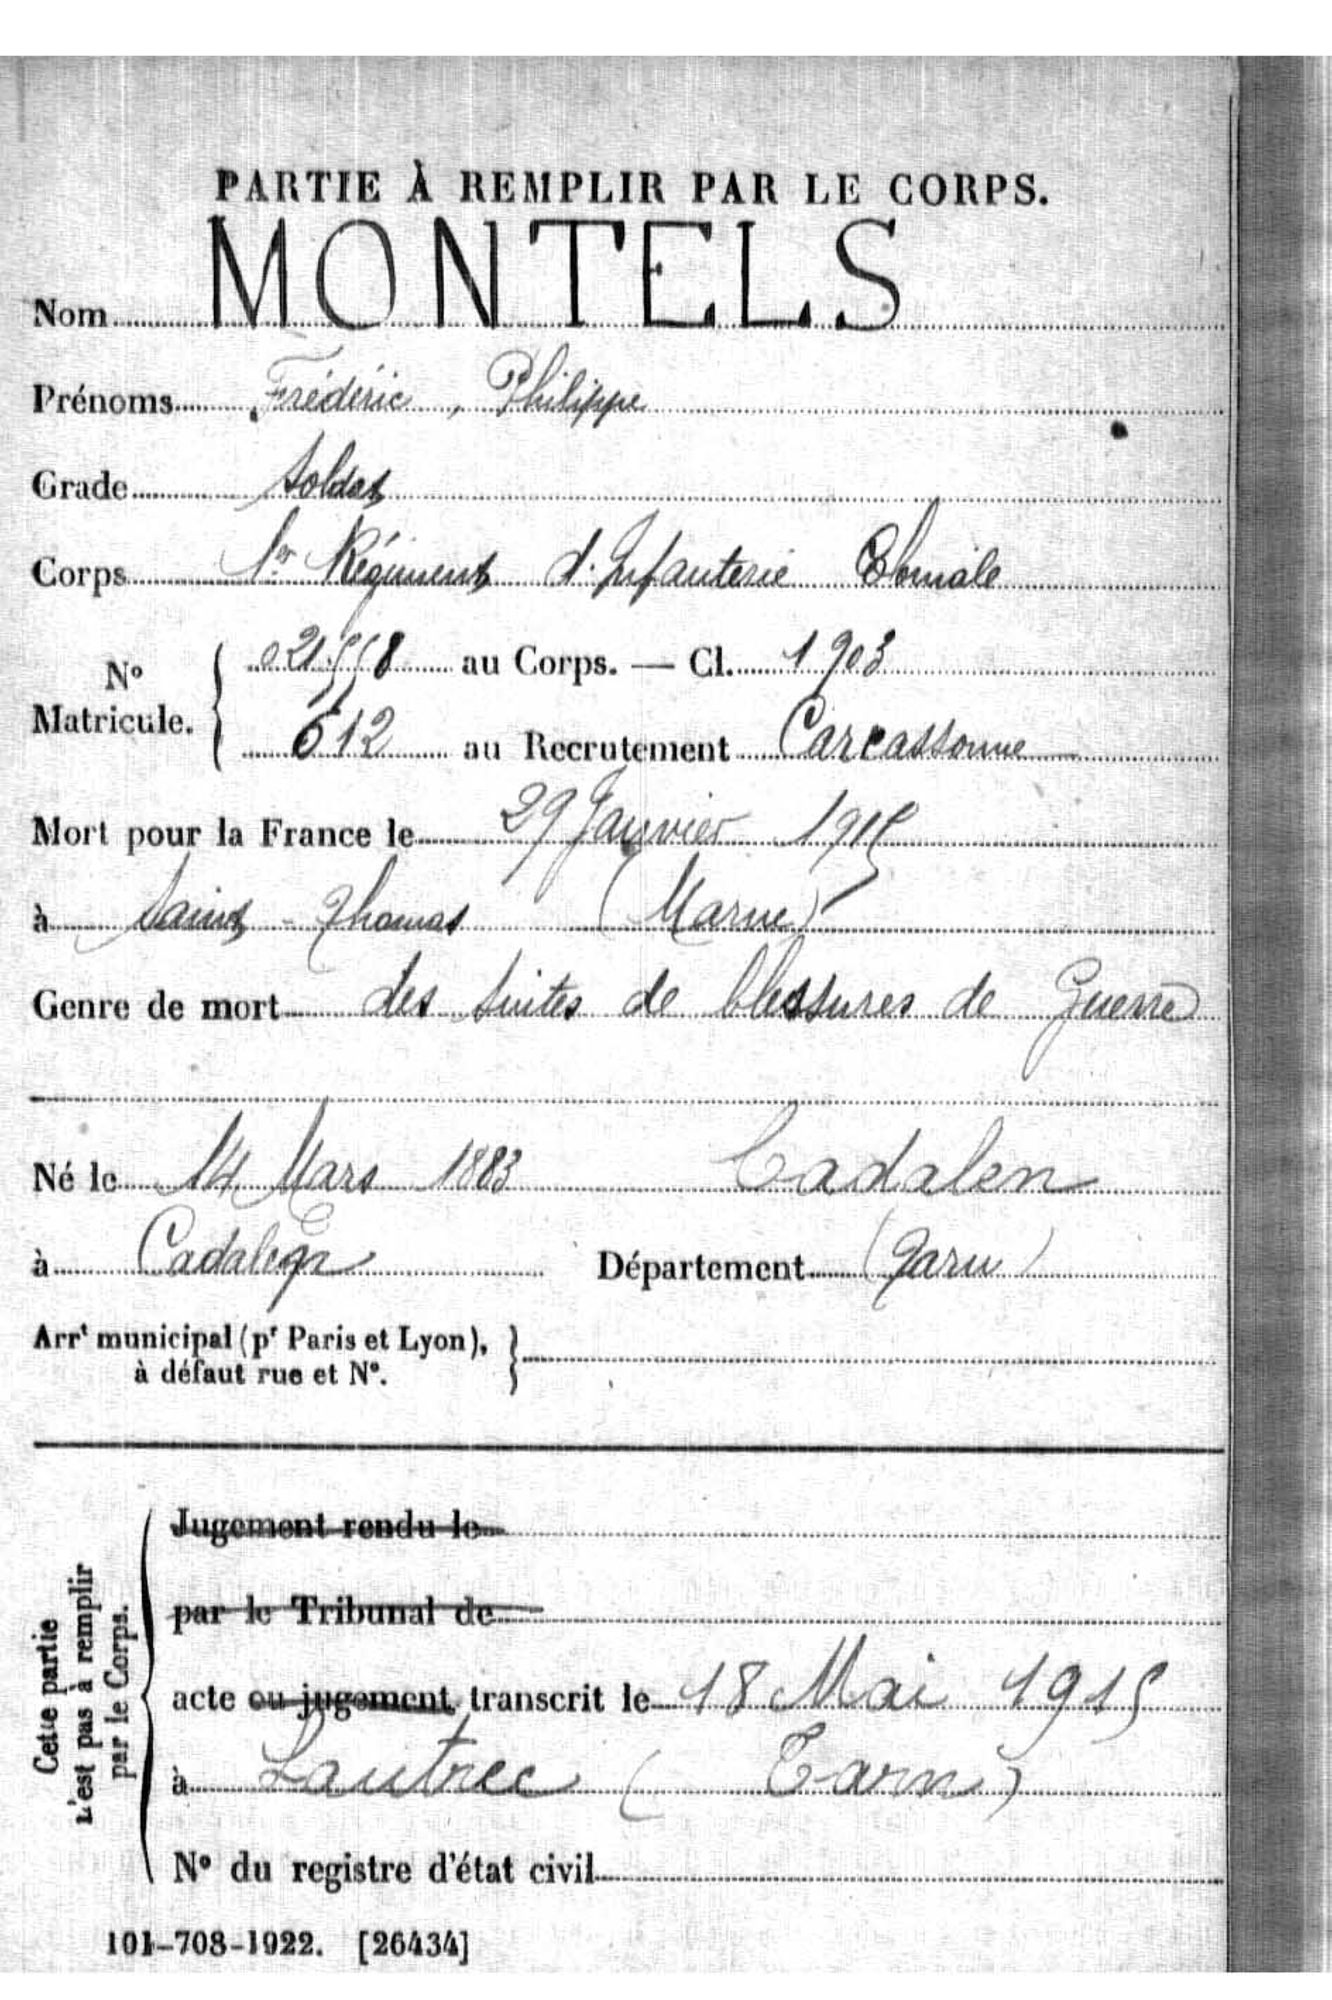 PARTIE À REMPLIR PAR LE CORPS.
Nom MONTELS
Prénoms Frédéric, Philippe
Grade Soldat
Corps 1er Régiment d'Infanterie Coloniale
No Matricule. { 021558 au Corps. — Cl. 1903
612 au Recrutement Carcassonne
Mort pour la France le 29 Janvier 1915
à Saint-Thomas (Marne)
Genre de mort des suites de blessures de Guerre
Né le 14 Mars 1883 Cadalen
à Département (Tarn)
Arrt municipal (pr Paris et Lyon), }
à défaut rue et No.
Cette partie
n'est pas à remplir
par le Corps.
Jugement rendu le
par le Tribunal de
acte ou jugement transcrit le 18 Mai 1915
à Lautrec (Tarn)
No du registre d'état civil
101-708-1922. [26434]